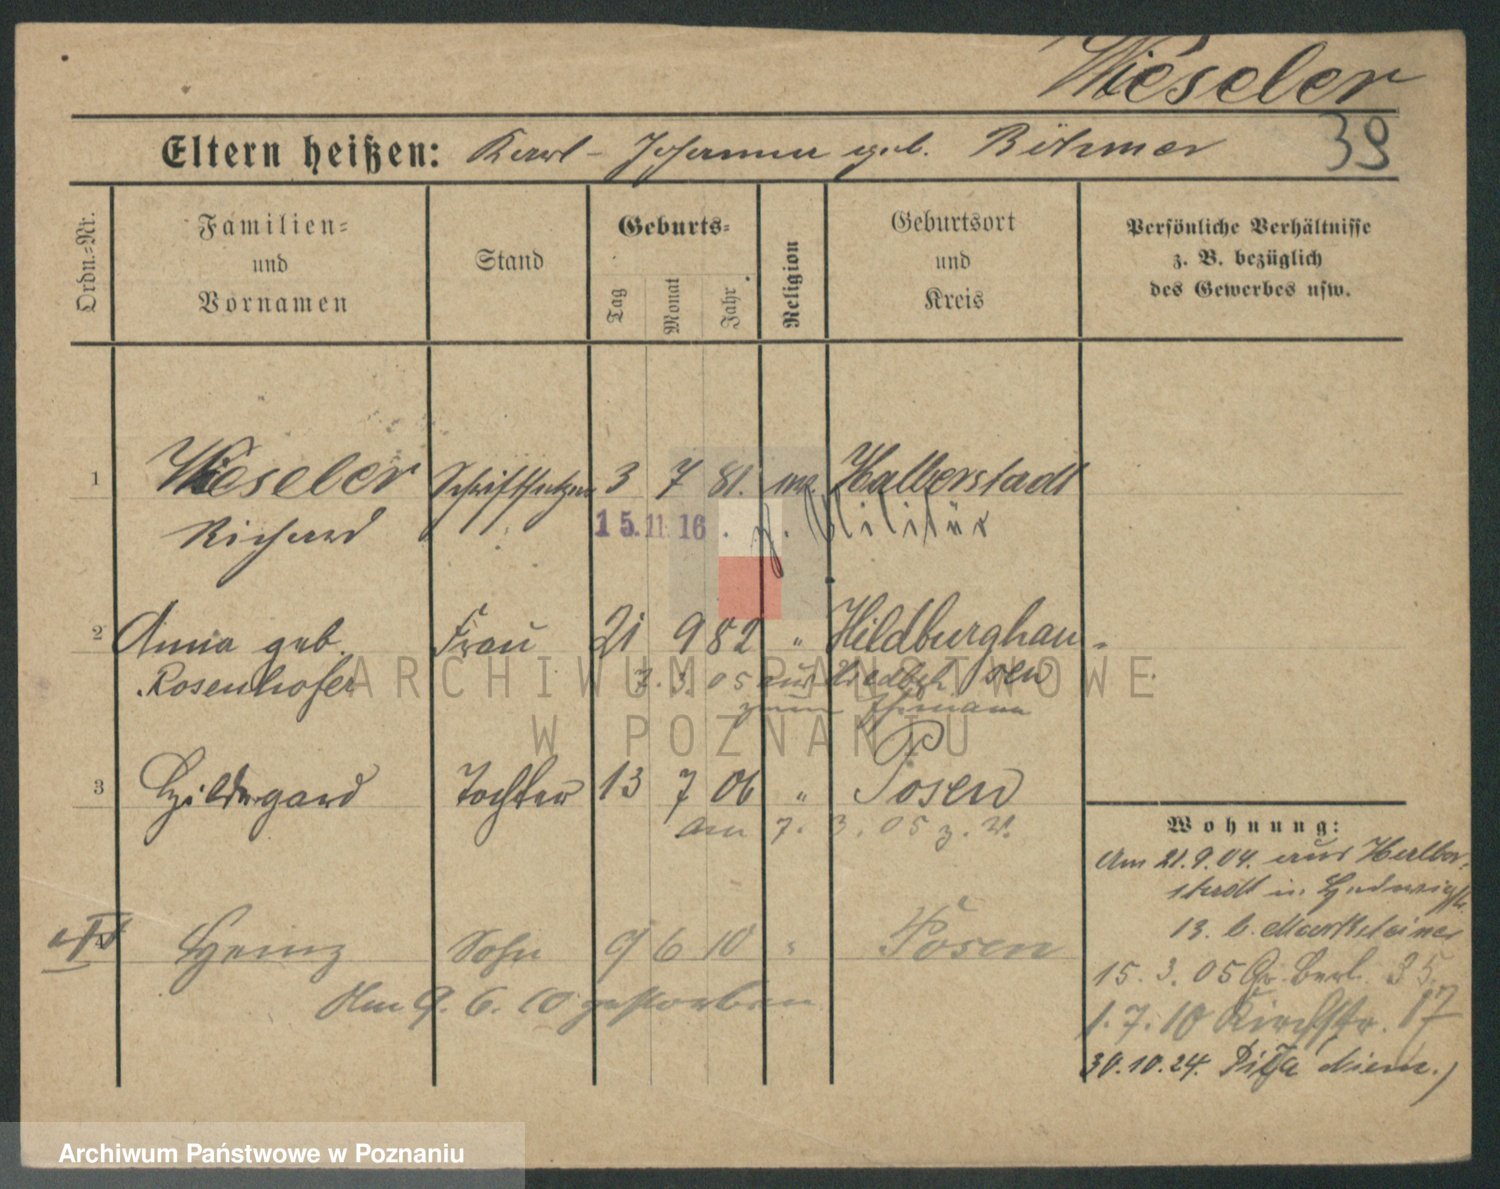 Wieseler
39
Eltern heißen: Karl - Johanna geb. Böhmer
Ordn.-Nr.
Familien-
und
Vornamen
Stand
Geburts-
Tag
Monat
Jahr
Religion
Geburtsort
und
Kreis
Persönliche Verhältnisse
z. B. bezüglich
des Gewerbes usw.
1 Wieseler Schriftsetzer 3 7 81. Halberstadt
Richard 15.11.16. z. Militär
2 Anna geb. Frau 21 9 82 " Hildburghau-
Rosenhofer 7.3.05 aus sen
zum Ehemann
3 Hildegard Tochter 13 7 06 " Posen
am 7. 3. 05 z. W.
4 Heinz Sohn 9 6 10 " Posen
Am 9. 6. 10 gestorben
Wohnung:
Am 21.9.04. aus Halber-
stadt n. Hedwigstr.
13. b.
15. 3. 05 Gr. Berl. 35
1. 7. 10 Kirchstr. 17
30.10.24.
ARCHIWUM PAŃSTWOWE
W POZNANIU
Archiwum Państwowe w Poznaniu